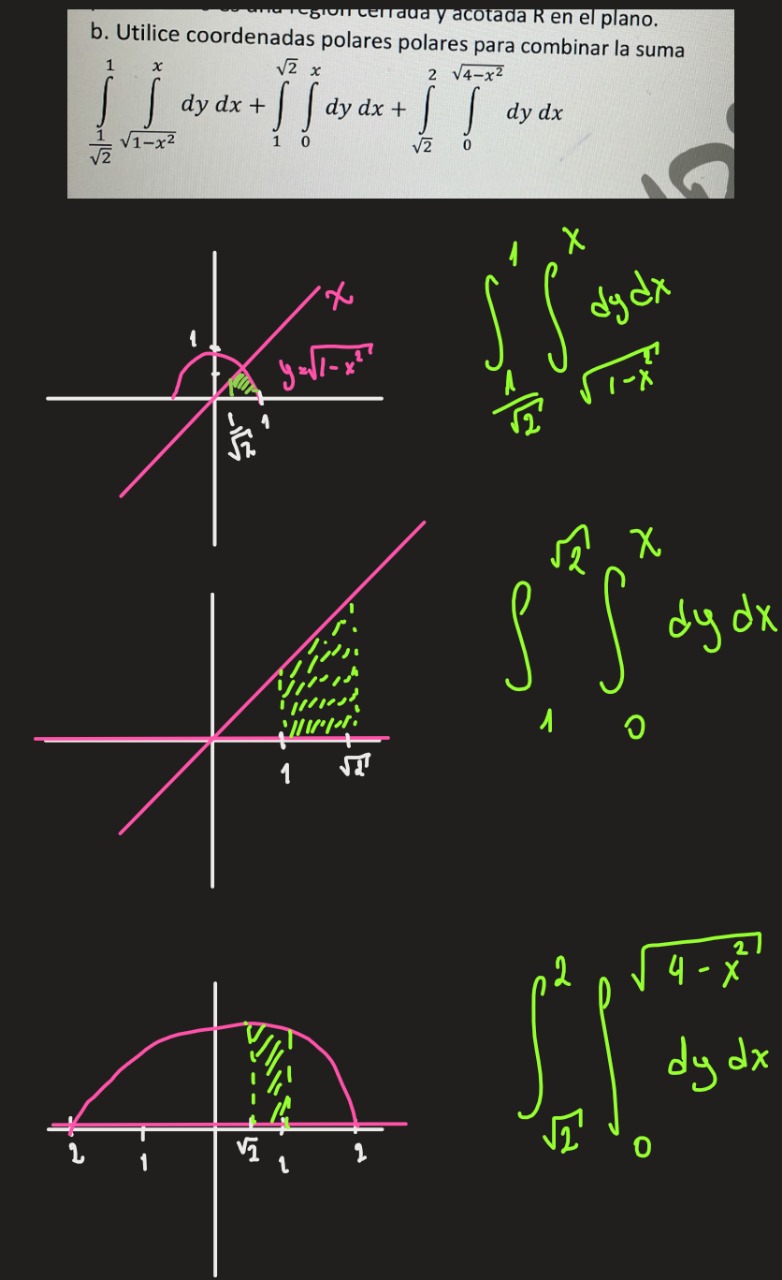 región cerrada y acotada R en el plano.
b. Utilice coordenadas polares polares para combinar la suma
1 x √2 x 2 √4−x²
∫ ∫ dy dx + ∫ ∫ dy dx + ∫ ∫ dy dx
1/√2 √1−x² 1 0 √2 0
x
1
y=√1-x²
1/√2 1
1 x
∫ ∫ dy dx
1/√2 √1-x²
1 √2
√2 x
∫ ∫ dy dx
1 0
2 1 √2 1 2
2 √4-x²
∫ ∫ dy dx
√2 0